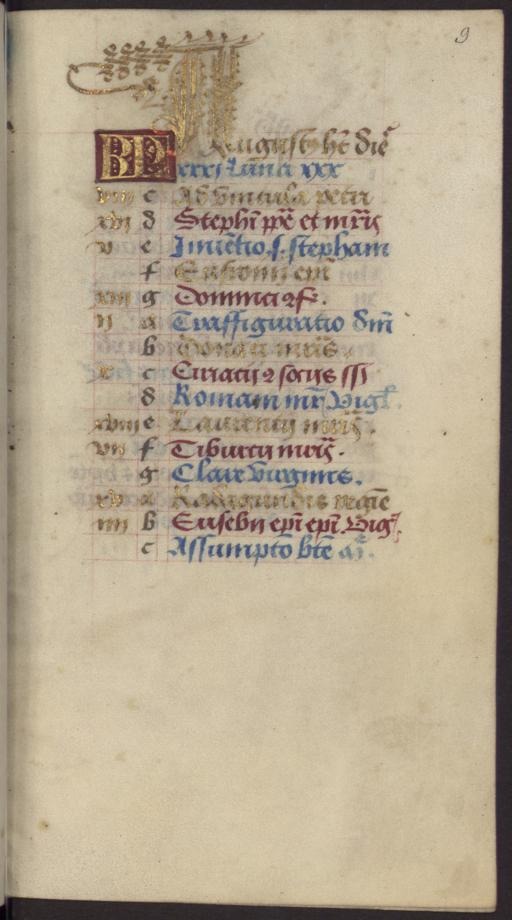 9
KL Augustꝰ hꝫ dieˢ
xxxi Luna xxx
viii c Ad vincula petri
xvi d Stephi ppe et mris
v e Inuẽtio .s. stephani
f
xiii g Dominici ꝯf.
ii a Trãsfiguratio dñi
b Donati mris.
x c Ciriacij ⁊ socijs
d Romani mr̃ Vigl.
xviii e Laurencij mris.
vii f Tiburcij mris.
g Clare virginis.
xv a Radegundis regine
iiii b Eusebij epi Vigl.
c Assumptõ bte m.